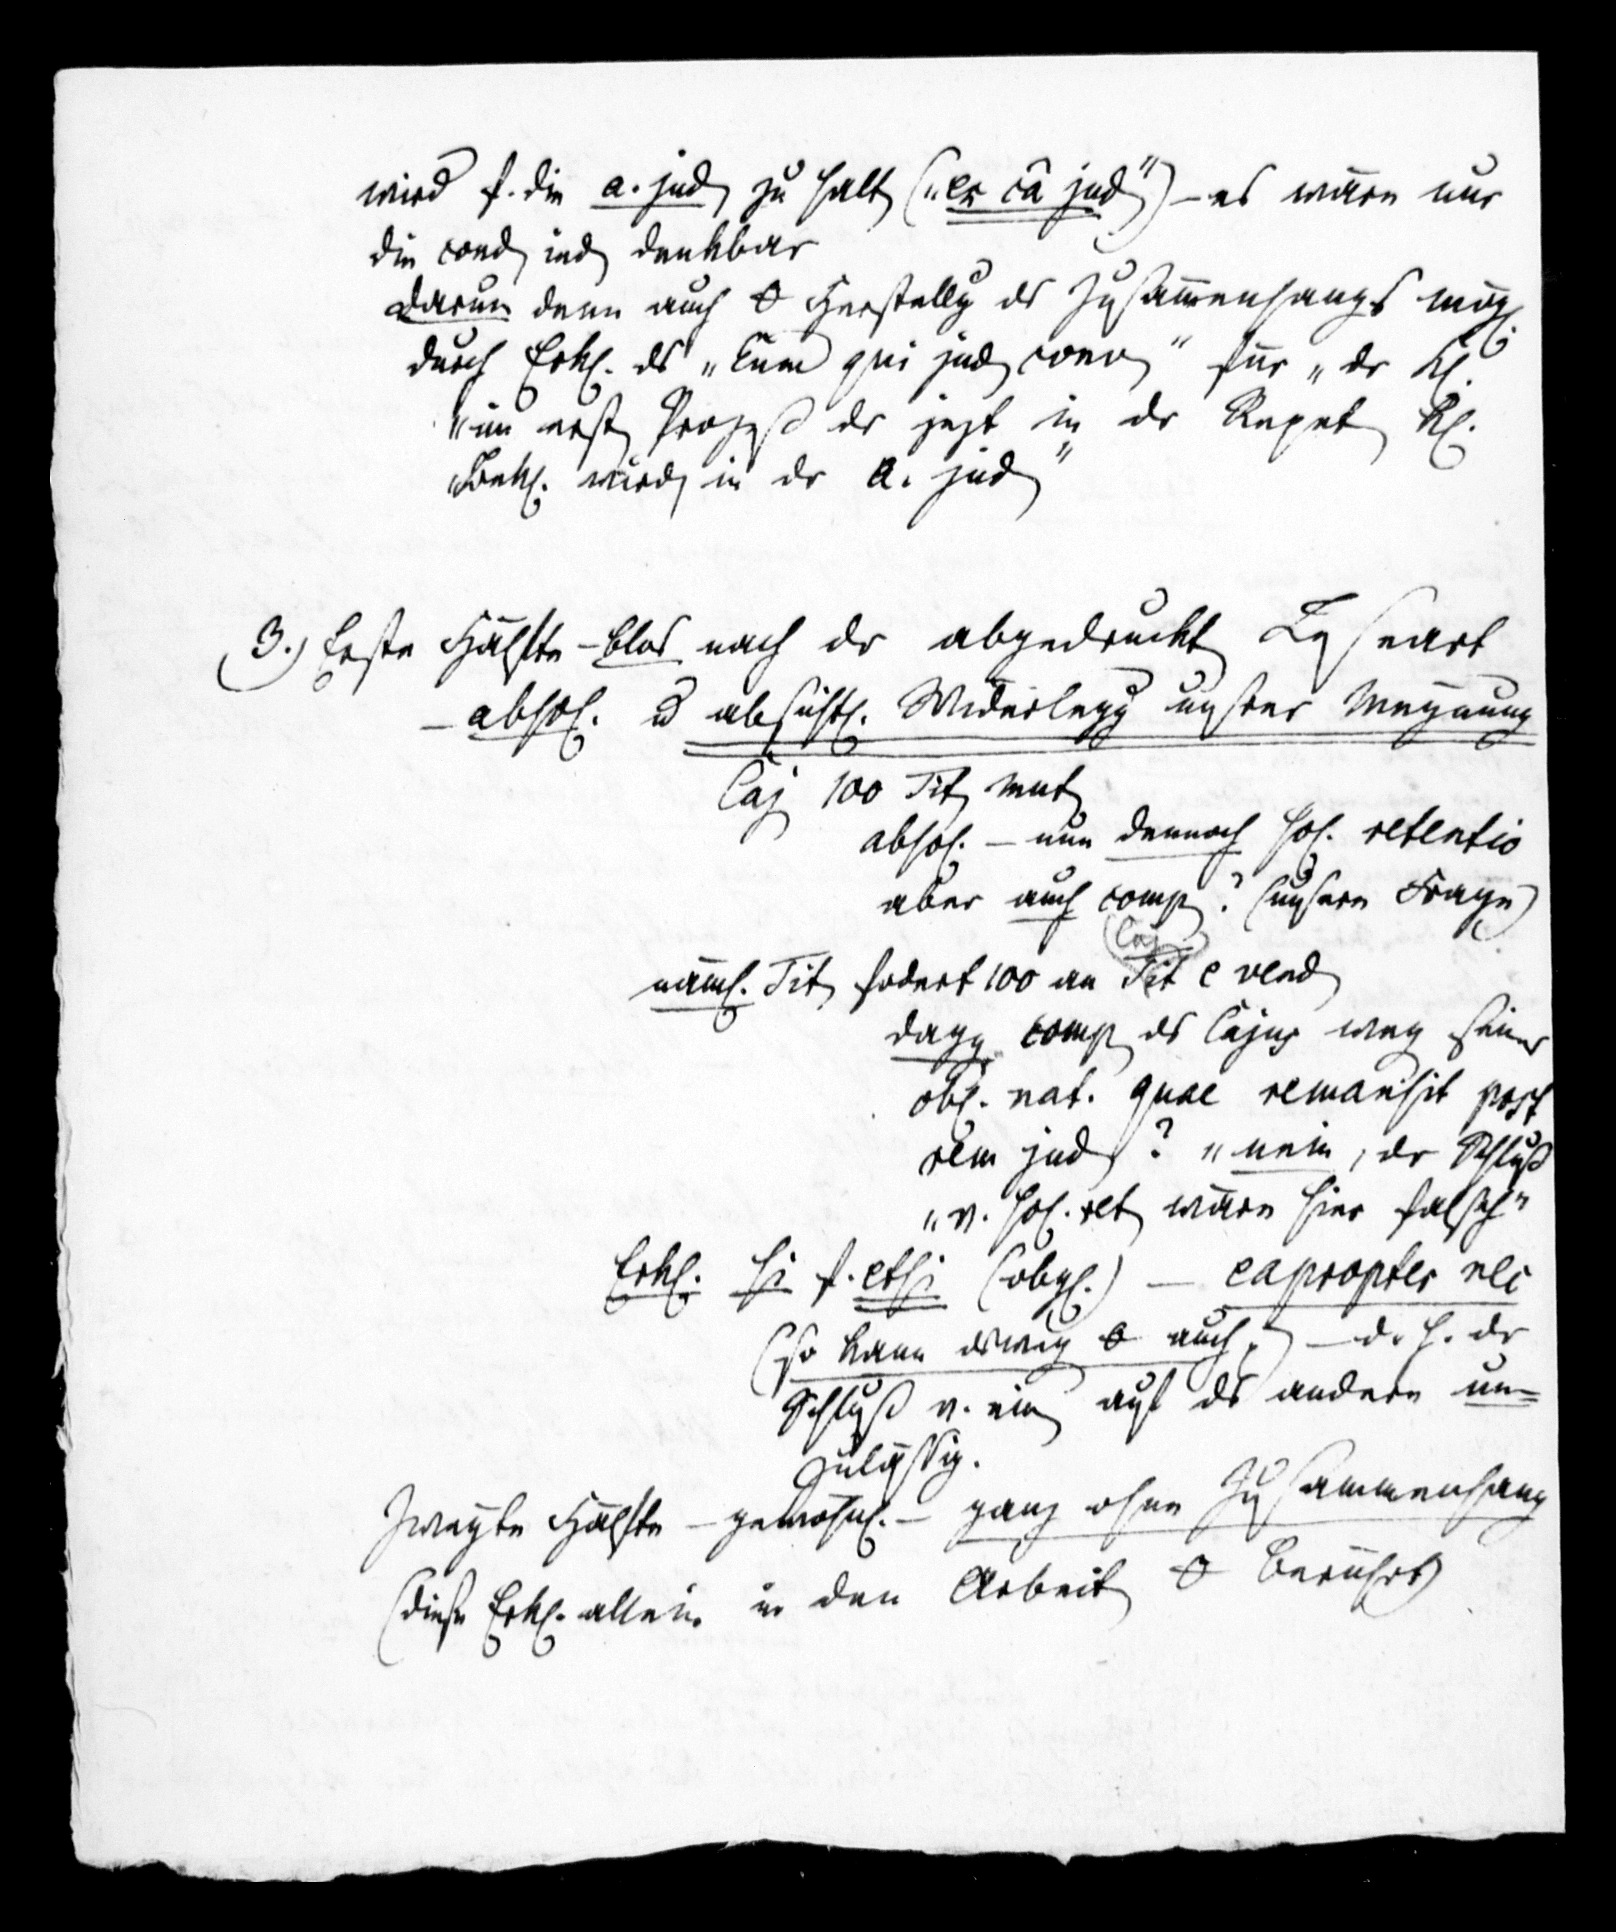 wird f. die a. jud zu halt („ex câ jud“) – es wäre nur
die cond ind denkbar
darum denn auch 0 Herstellg ds Zusamenhangs mögl.
durch Erkl. ds „Eum qui jud conv“ für „dr Kl.
„im erst Prozeß dr jezt in dr Repet Kl.
„Bekl. würd in dr a. jud“
3.) Erste Hälfte – blos nach dr abgedruckt Lesart
– absol. u absichtl. Widerlegg unsrer Meynung
Caj 100 Tit mut
absol. – nun dennoch sol. retentio
aber auch comp? (unsere Frage)
Caj
näml. Tit fodert 100 an Tit e vend
dagg comp ds Cajus weg seiner
obl. nat. quae remansit post
rem jud? „nein, dr Schluß
„v. sol. ret wäre hier falsch“
Erkl. si f. etsi (obgl.) – eapropter nec
(so kann deswg 0 auch) – d. h. dr
Schluß v. ein auf ds andere un=
zulässig.
Zweyte Hälfte – gewöhnl. – ganz ohne Zusammenhang
(diese Erkl. allein in den Arbeit 0 berührt)